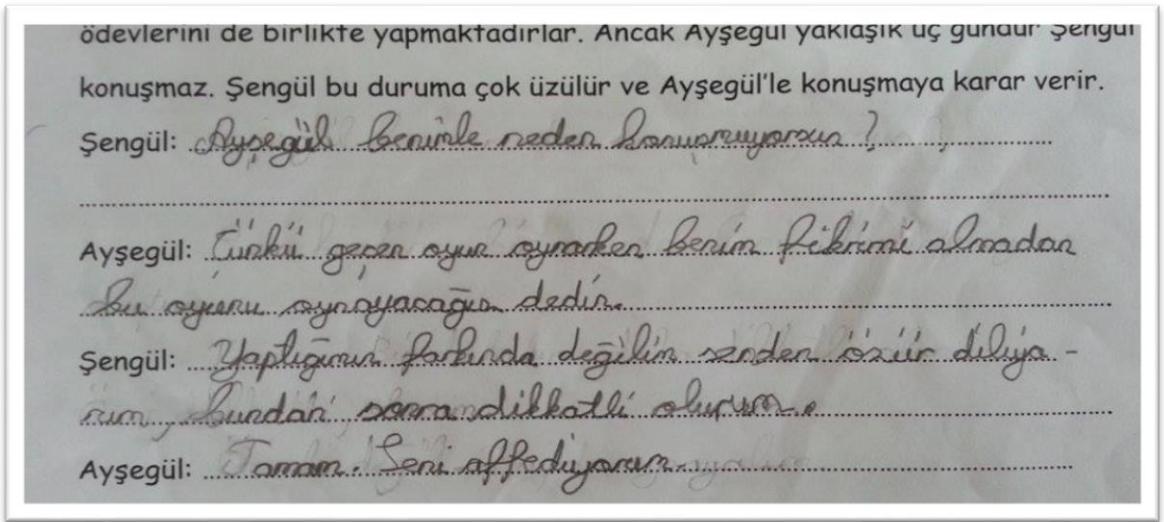 ödevlerini de birlikte yapmaktadırlar. Ancak Ayşegül yaklaşık üç gündür Şengül
konuşmaz. Şengül bu duruma çok üzülür ve Ayşegül'le konuşmaya karar verir.
Şengül: Ayşegül benimle neden konuşmuyorsun?
Ayşegül: Çünkü geçen oyun oynarken benim fikrimi almadan
bu oyunu oynayacağız dedin.
Şengül: Yaptığımın farkında değilim senden özür diliyo-
rum, bundan sonra dikkatli olurum.
Ayşegül: Tamam. Seni affediyorum.